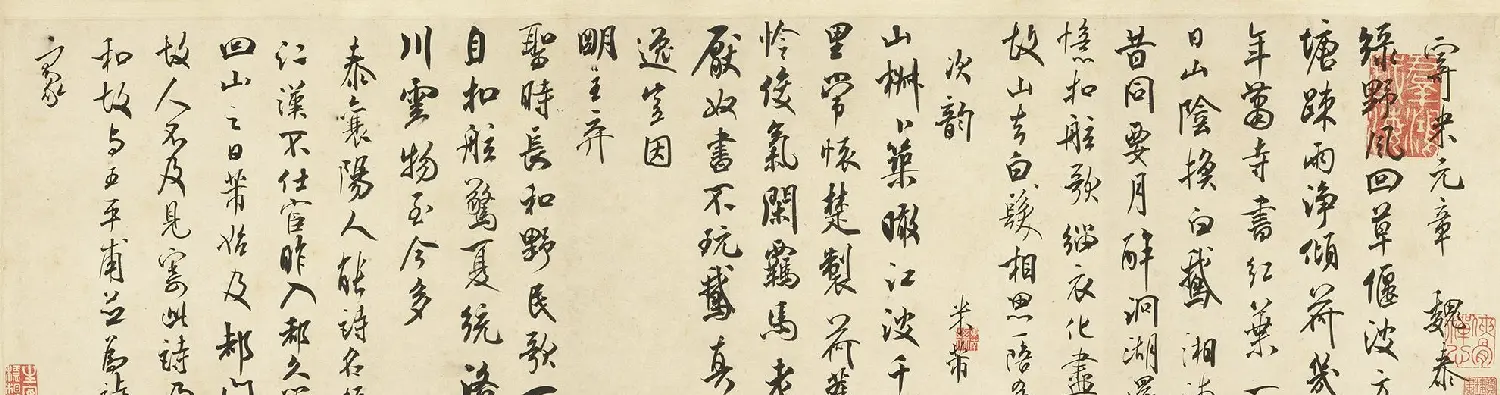 寄米元章 魏泰
綠野風回草偃波方
塘疎雨淨傾荷幾
年蕭寺書紅葉一
日山陰換白鵝湘
昔同要月醉洞湖還
憶扣舷歌緇衣化盡
故山去白髮相思一陪
次韻 米芾
山椒卜築瞰江波千
里常懷楚製荷舊
怜俊氣閑羈馬老
厭奴書不玩鵝真
逸豈因
明主弃
聖時長和野民歌一
自扣舷驚夏統洛
川雲物至今多
泰襄陽人能詩名振
江漢不仕宦昨入都久
回山之日芾始及都門
故人不及見寄此詩乃
和故与王平甫並為詩
豪